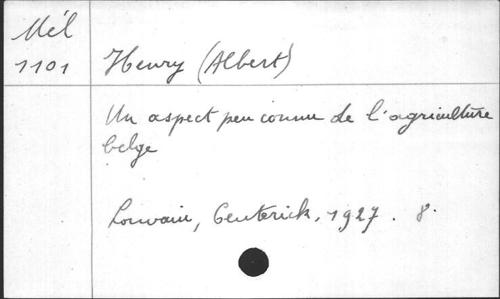 Mél
1101
Henry (Albert)
Un aspect peu connu de l'agriculture
belge
Louvain, Ceuterick, 1927. 8.